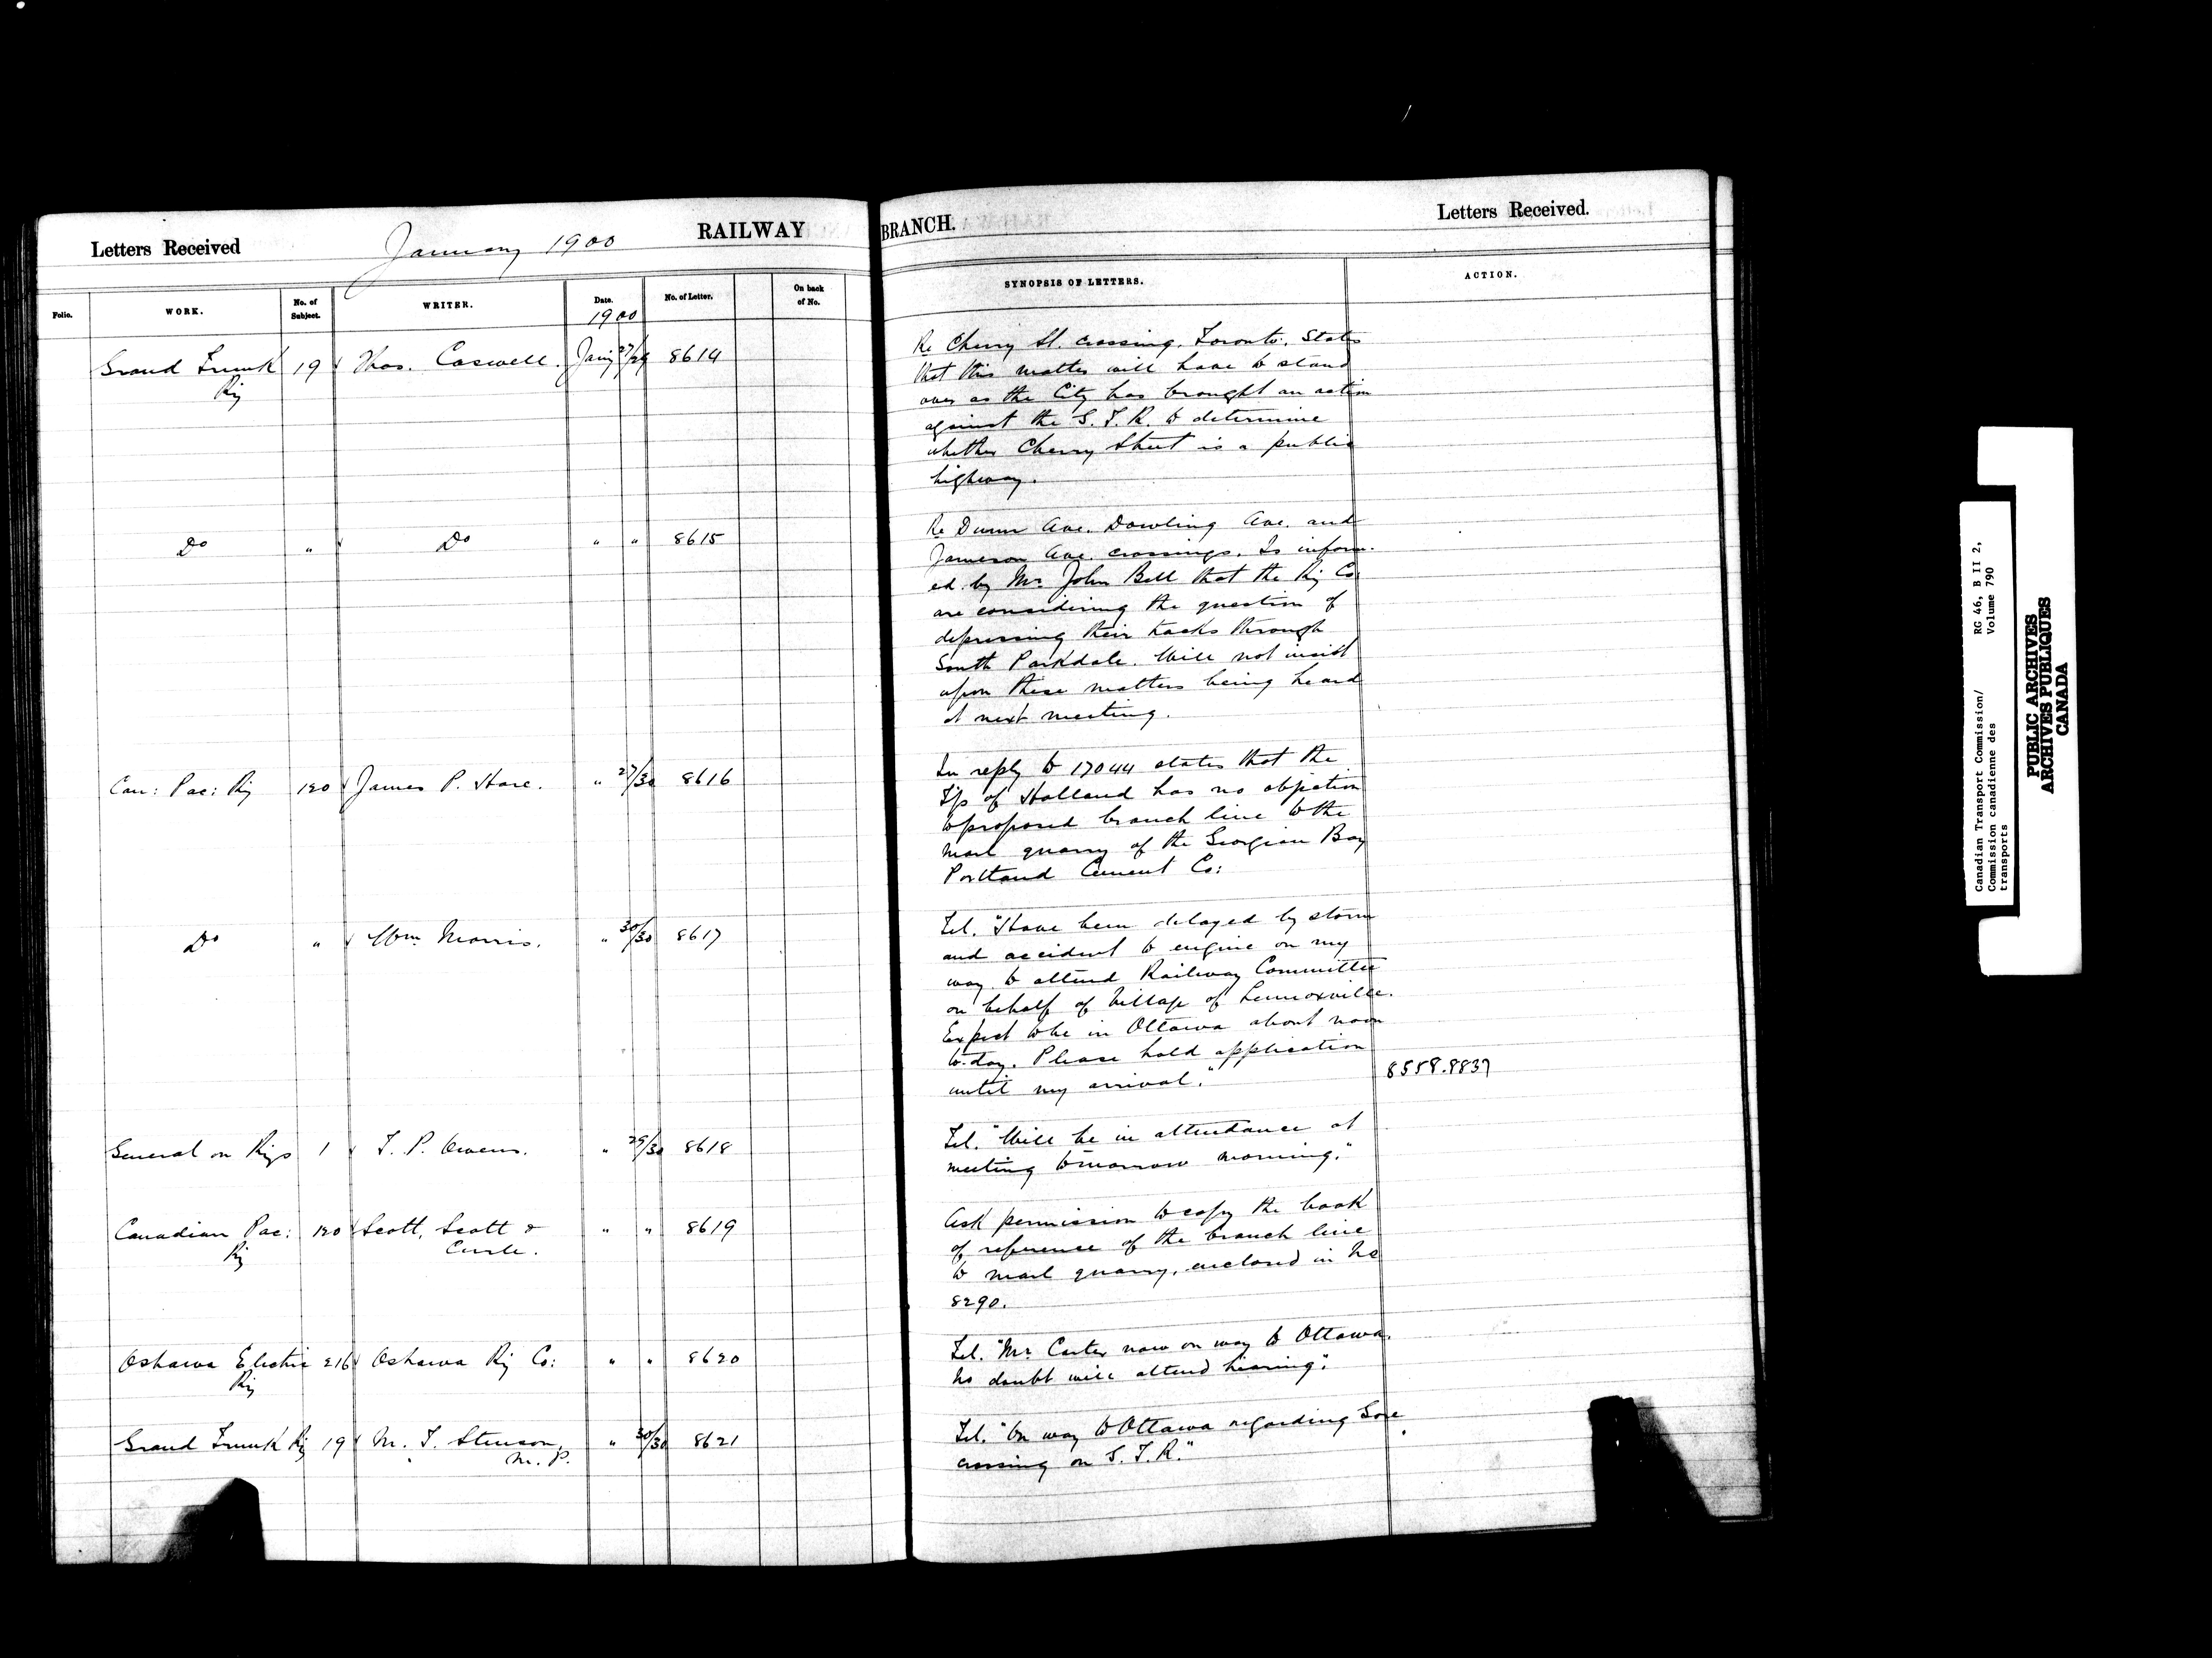 Letters Received
January 1900
RAILWAY
BRANCH.
Letters Received.
Folio.
WORK.
No. of Subject.
WRITER.
Date.
1900
No. of Letter.
On back of No.
SYNOPSIS OF LETTERS.
ACTION.
Grand Trunk 19 Thos. Caswell. Jany 27/29 8614
Ry
Re Cherry St. crossing. Toronto. States
that this matter will have to stand
over as the City has brought an action
against the G. T. R. to determine
whether Cherry Street is a public
highway.
Do " Do " " 8615
Re Dunn Ave. Dowling Ave. and
Jameson Ave. crossings. Is inform-
ed by Mr. John Bell that the Ry Co
are considering the question of
depressing their tracks through
South Parkdale. Will not insist
upon these matters being heard
at next meeting.
Can: Pac: Ry 120 James P. Hare. " 27/30 8616
In reply to 17044 states that the
T'p of Holland has no objection
to proposed branch line to the
marl quarry of the Georgian Bay
Portland Cement Co:
Do " Wm. Morris. " 30/30 8617
Tel. "Have been delayed by storm
and accident to engine on my
way to attend Railway Committee
on behalf of Village of Lennoxville.
Expect to be in Ottawa about noon
to-day. Please hold application
until my arrival."
8558.8837
General on Rys 1 T. P. Owens. " 29/30 8618
Tel. "Will be in attendance at
meeting tomorrow morning."
Canadian Pac: 120 Scott, Scott & " " 8619
Ry Curle.
Ask permission to copy the book
of reference of the branch line
to marl quarry, enclosed in No
8290.
Oshawa Electric 216 Oshawa Ry Co: " " 8620
Ry
Tel. "Mr. Carter now on way to Ottawa.
No doubt will attend hearing".
Grand Trunk Ry 19 M. T. Stenson, " 30/30 8621
M. P.
Tel. "On way to Ottawa regarding Gore
crossing on G. T. R."
Canadian Transport Commission/
Commission canadienne des
transports
RG 46, B II 2,
Volume 790
PUBLIC ARCHIVES
ARCHIVES PUBLIQUES
CANADA